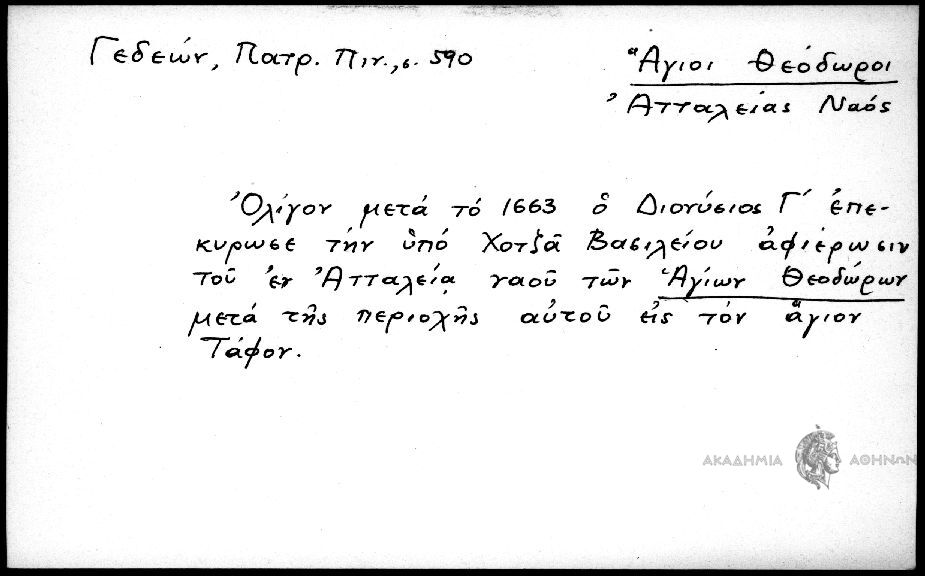 Γεδεών, Πατρ. Πιν., σ. 590
Ἅγιοι Θεόδωροι
Ἀτταλείας Ναός
Ὀλίγον μετά τό 1663 ὁ Διονύσιος Γ΄ ἐπε-
κύρωσε τήν ὑπό Χοτζᾶ Βασιλείου ἀφιέρωσιν
τοῦ ἐν Ἀτταλείᾳ ναοῦ τῶν Ἁγίων Θεοδώρων
μετά τῆς περιοχῆς αὐτοῦ εἰς τόν ἅγιον
Τάφον.
ΑΚΑΔΗΜΙΑ ΑΘΗΝΩΝ